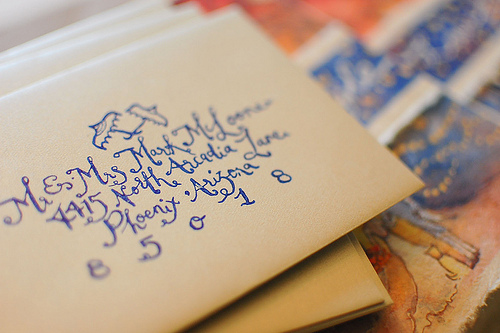 Mr. & Mrs. Mark McLoone
4415 North Arcadia Lane
Phoenix, Arizona
8 5 0 1 8